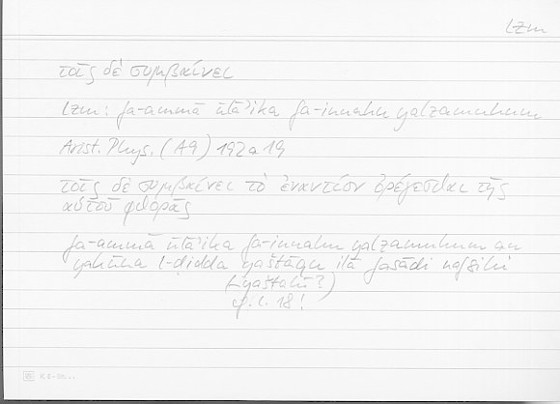 lzm
τοῖς δὲ συμβαίνει
lzm: fa-ammā ūlāʾika fa-innahu yalzamuhum
Arist. Phys. (A9) 192a19
τοῖς δὲ συμβαίνει τὸ ἐναντίον ὀρέγεσθαι τῆς
αὑτοῦ φθορᾶς
fa-ammā ūlāʾika fa-innahu yalzamuhum an
yakūna l-ḍidda yaštāqu ilā fasādi nafsihi
yaštahī?)
18!